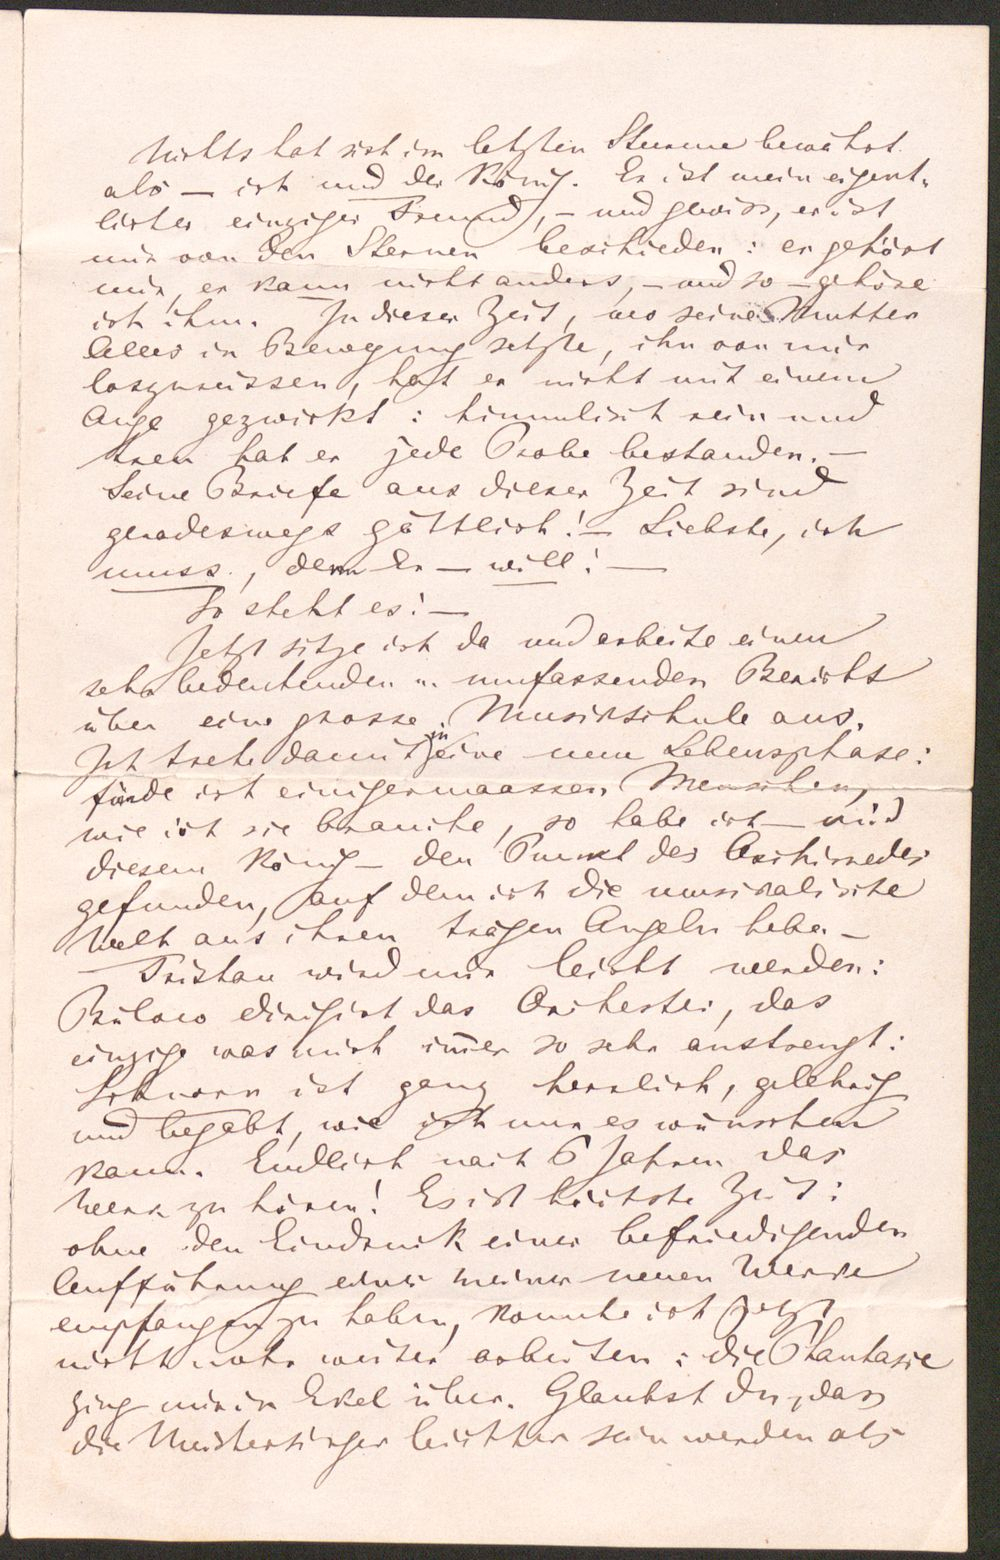 Nichts hat sich im letzten Sturme bewährt
als — ich und der König. Er ist mein eigent-
licher einziger Freund, — und gewiss, er ist
mir von den Sternen beschieden: er gehört
mir, er kann nicht anders, — und so — gehöre
ich ihm. In dieser Zeit, wo seine Mutter
Alles in Bewegung setzte, ihn von mir
loszureissen, hat er nicht mit einem
Auge gezwickt: himmlisch rein und
treu hat er jede Probe bestanden. —
Seine Briefe aus dieser Zeit sind
geradeswegs göttlich! — Liebste, ich
muss, denn Er — will! —
So steht es! —
Jetzt sitze ich da und arbeite einen
sehr bedeutenden u. umfassenden Bericht
über eine grosse Musikschule aus.
Ich trete damit in eine neue Lebensphase:
finde ich einigermaassen Menschen,
wie ich sie brauche, so habe ich — mit
diesem König — den Punkt des Archimedes
gefunden, auf dem ich die musikalische
Welt aus ihren trägen Angeln hebe. —
Tristan wird mir leicht werden:
Bülow dirigirt das Orchester, das
einzige was mich imer so sehr anstrengt:
Schnorr ist ganz herrlich, gelehrig
und begabt, wie ich nur es wünschen
kann. Endlich nach 6 Jahren das
Werk zu hören! Es ist höchste Zeit:
ohne den Eindruck einer befriedigenden
Aufführung eines meiner neuen Werke
empfangen zu haben, konnte ich jetzt
nicht mehr weiter arbeiten: die Phantasie
ging mir in Ekel über. Glaubst du, dass
die Meistersinger leichter sein werden als